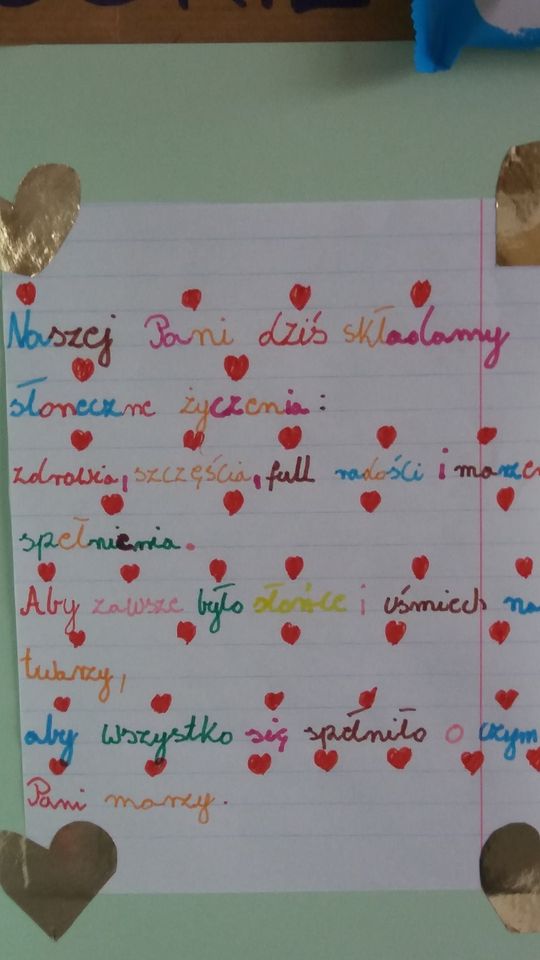 Naszej Pani dziś składamy
słoneczne życzenia:
zdrowia, szczęścia, full radości i marzeń
spełnienia.
Aby zawsze było słońce i uśmiech na
twarzy,
aby wszystko się spełniło o czym
Pani marzy.